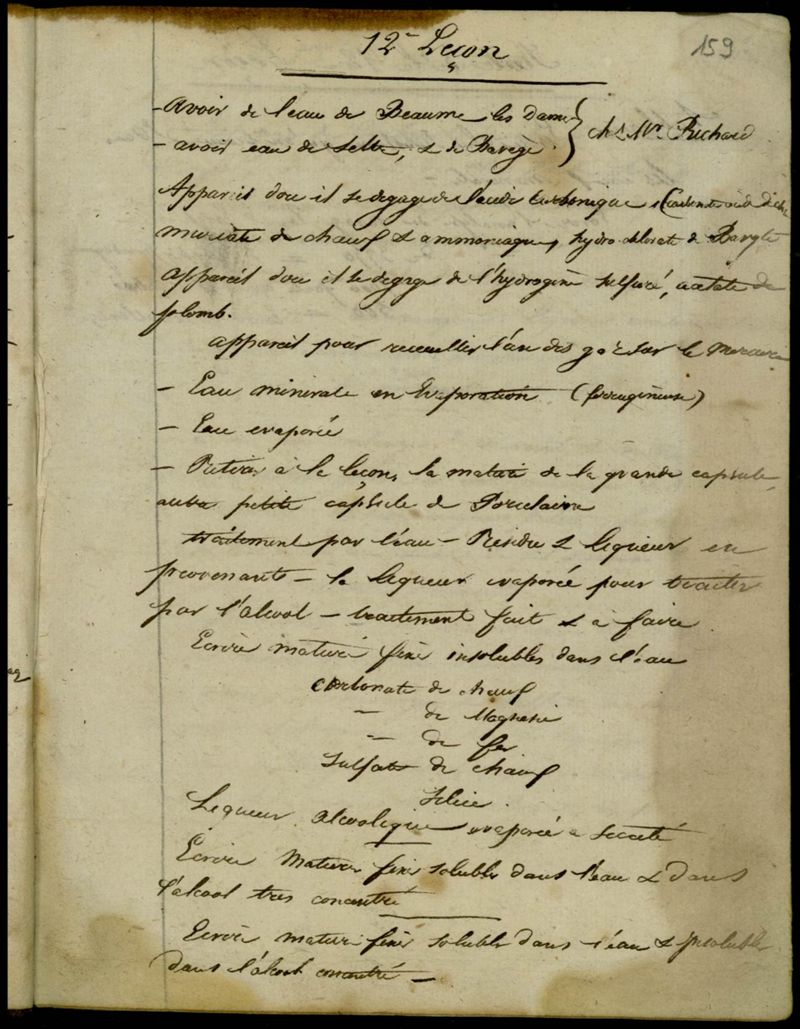 159
12e Leçon
- Avoir de l'eau de Beaume les Dames } ch Mr Richard
- avoir eau de Selts, & de Barège.
Appareil dou il se degage de l'acide carbonique
muriate de chaux & ammoniaque, hydrochlorate de Baryte
appareil dou il se degage de l'hydrogène sulfuré, acetate de
plomb.
appareil pour recueillir l'un des gaz sur le Mercure
- Eau minerale en Evaporation (ferrugineuse)
- Eau evaporée
- Retirer à la leçon, la matière de la grande capsule,
petite capsule de Porcelaine
traitement par l'eau - Residu & liqueur en
provenants - la liqueur evaporée pour traiter
par l'alcool - traitement fait & à faire
Ecrire matière fixes insolubles dans l'eau
Carbonate de chaux
— de Magnesie
— de fer
Sulfate de chaux
Silice.
Liqueur alcoolique evaporée a siccité
Ecrire Matieres fixes solubles dans l'eau & dans
l'alcool tres concentré
Ecrire matiere fixes solubles dans l'eau & insolubles
dans l'alcool concentré -